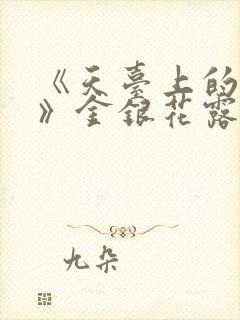 《天臺上的
》金銀花露
九朵